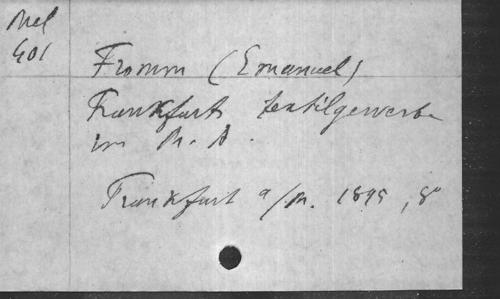 Mel
401
Fromm (Emanuel)
Frankfurts textilgewerbe
im M. A.
Frankfurt a/M. 1895, 8°